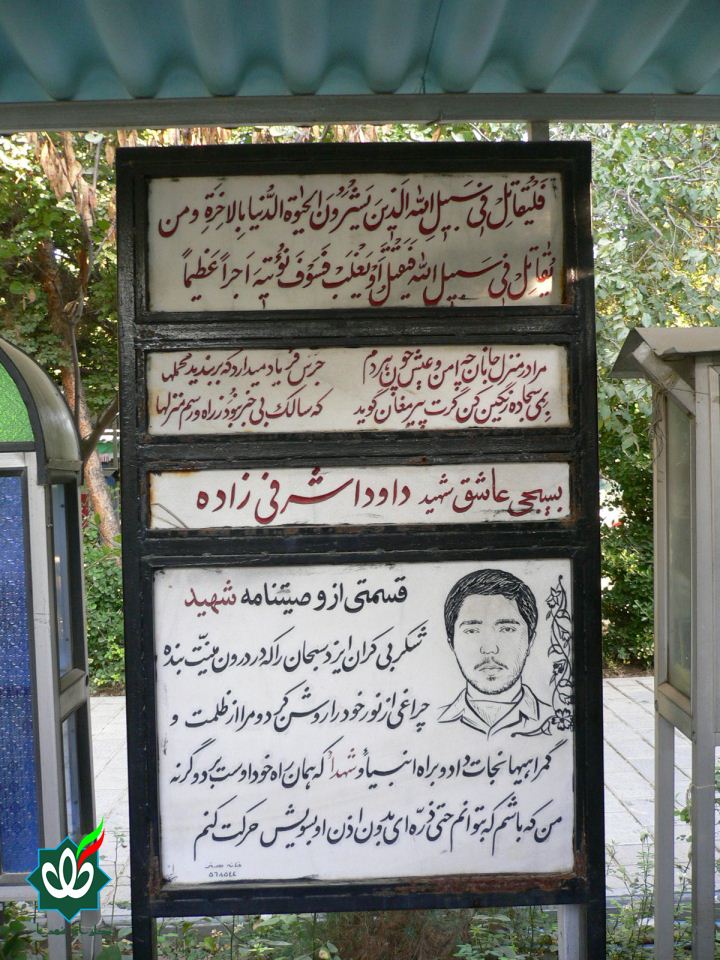 فَلْيُقاتِلْ فی سَبیلِ اللهِ الَّذینَ یَشْرُونَ الحَیٰوةَ الدُّنیا بِالاخِرَةِ وَ من
یُقاتِلْ فی سَبیلِ اللهِ فَیُقتَلْ اَوْ یَغلِبْ فَسَوفَ نُؤْتیهِ اَجراً عَظیماً
مرا در منزل جانان چه امن و عیش چون هر دم جرس فریاد میدارد که بربندید محملها
بمی سجاده رنگین کن گرت پیر مغان گوید که سالک بی خبر نبود ز راه و رسم منزلها
بسیجی عاشق شهید داود اشرفی زاده
قسمتی از وصیتنامه شهید
شکر بی کران ایزد سبحان را که در درون منیّت بنده
چراغی از نور خود را روشن کرد و مرا از ظلمت و
گمراهیها نجات داد و براه انبیاء و شهدا که همان راه خود اوست برد و گرنه
من که باشم که بتوانم حتی ذرّه ای بدون اذن او بسویش حرکت کنم
۵۶۸۵۴۴